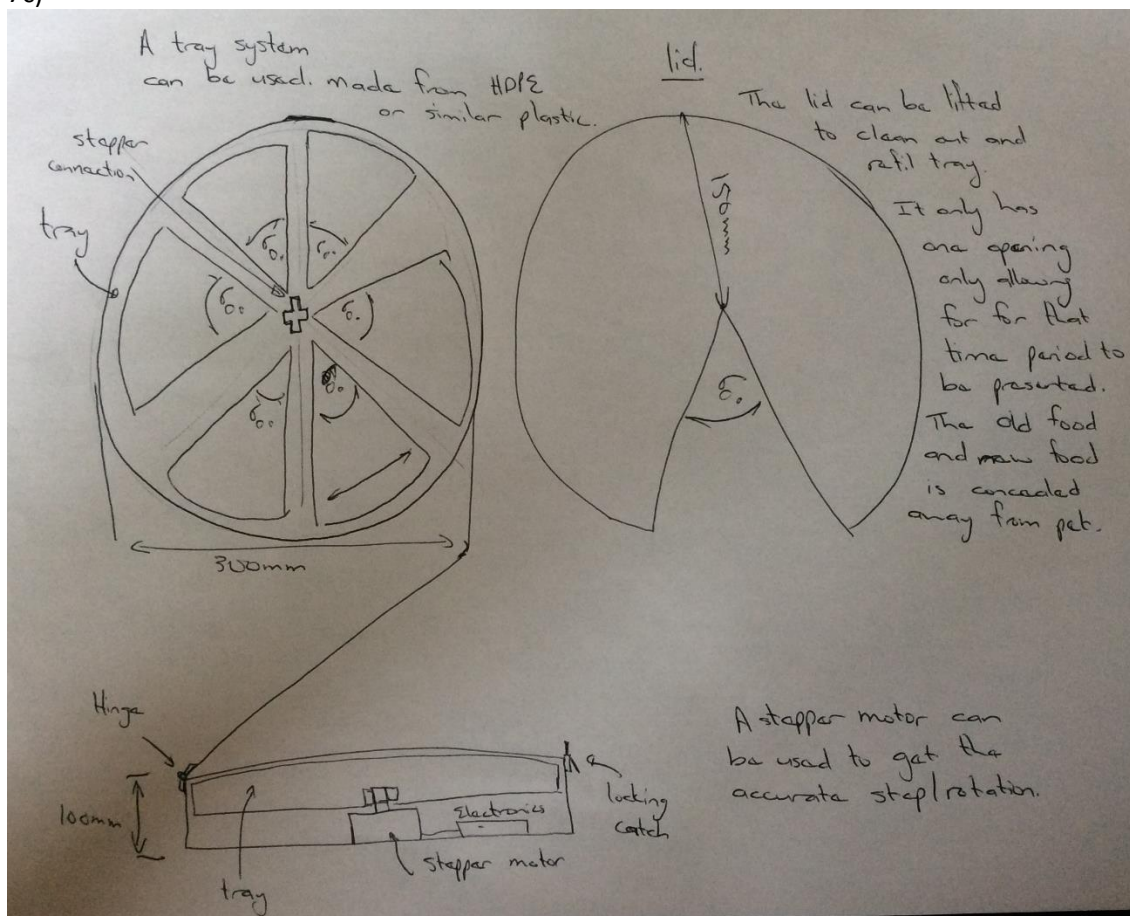 A tray system
can be used. made from HDPE
or similar plastic.
stepper
connection
tray
60°
60°
60°
60°
60°
60°
300mm
lid.
150mm
60°
The lid can be lifted
to clean out and
refil tray.
It only has
one opening
only allowing
for for that
time period to
be presented.
The old food
and new food
is concealed
away from pet.
Hinge
100mm
tray
stepper motor
Electronics
locking
catch
A stepper motor can
be used to get the
accurate step/rotation.